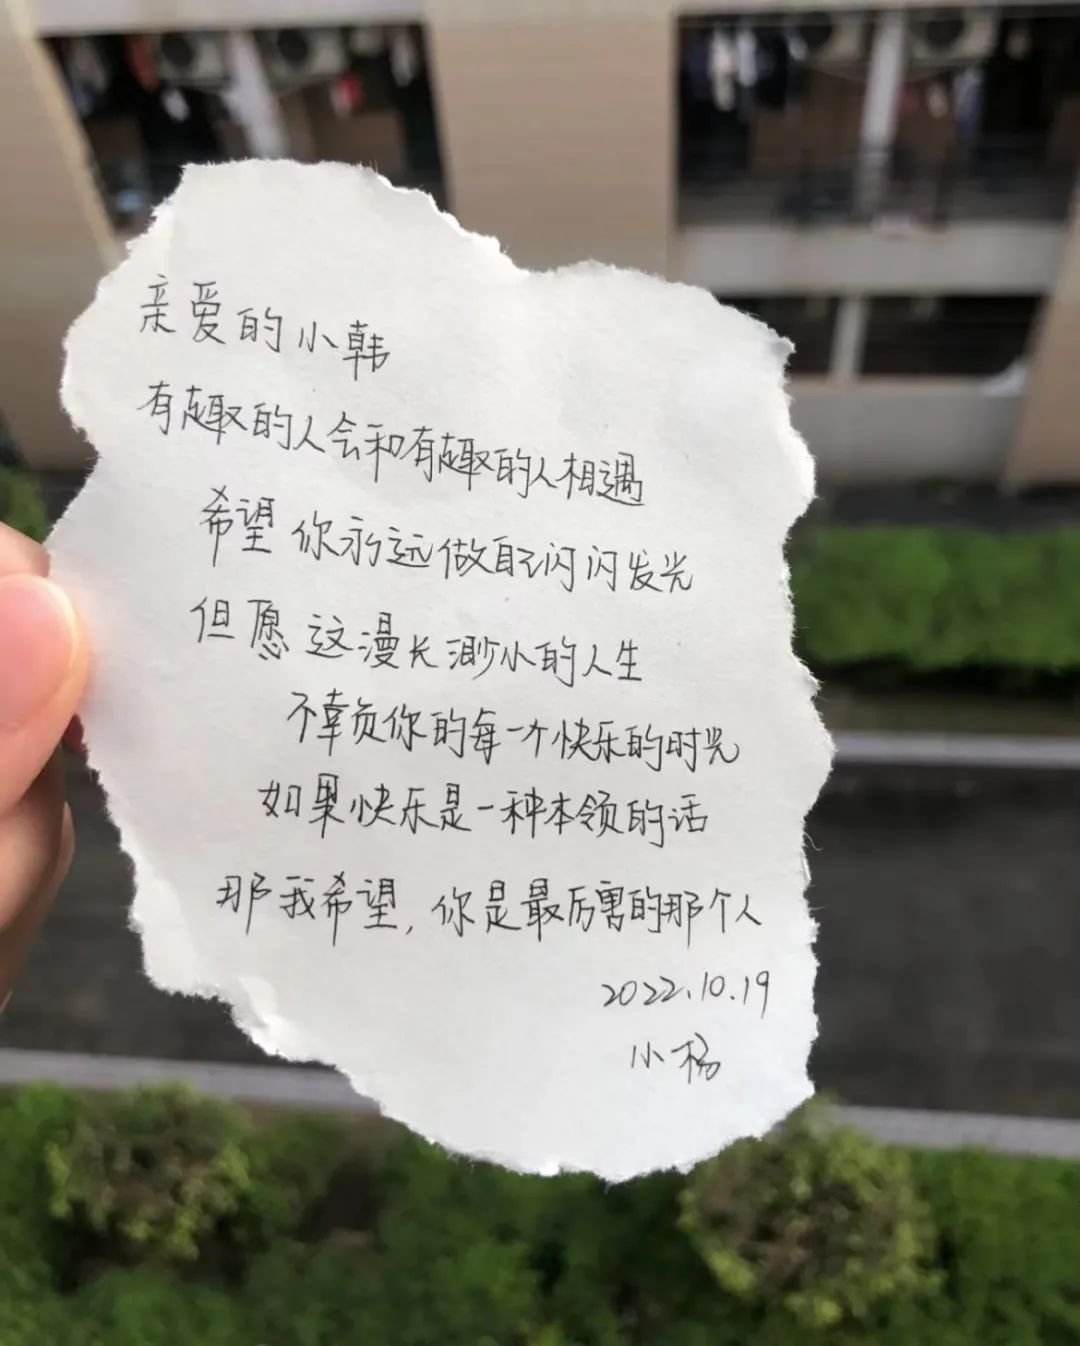 亲爱的小韩
有趣的人会和有趣的人相遇
希望你永远做自己闪闪发光
但愿这漫长渺小的人生
不辜负你的每一个快乐的时光
如果快乐是一种本领的话
那我希望，你是最厉害的那个人
2022.10.19
小杨